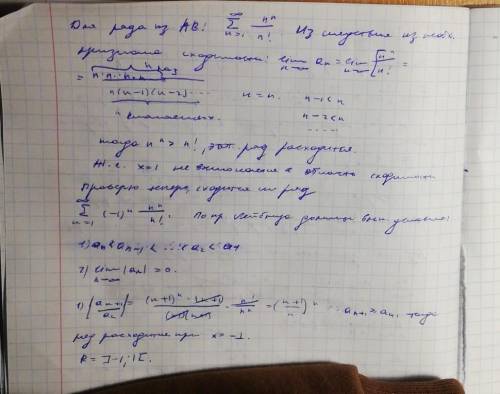 Для ряда из АВ: ∑_{n=1}^{∞} n^n / n! . Из следствия из необх.
признака сходимости: lim_{n→∞} a_n = lim_{n→∞} [n^n / n! =
= n·n·...·n·n (n раз) / n(n-1)(n-2)... n = n. n-1<n
n n-2<n
.....
тогда n^n > n!, этот ряд расходится.
Т.е. x=1 не в область сходимости
Проверю теперь, сходится ли ряд
∑_{n=1}^{∞} (-1)^n n^n / n!. По пр. Лейбница должны быть условия:
1) a_n < a_{n-1} < ... < a_2 < a_1
2) lim_{n→∞} |a_n| = 0.
1) |a_{n+1} / a_n| = (n+1)^n · (n+1) / (n+1) n! · n! / n^n = ((n+1)/n)^n a_{n+1} > a_n, тогда
ряд расходится при x = -1.
R = ]-1; 1[.